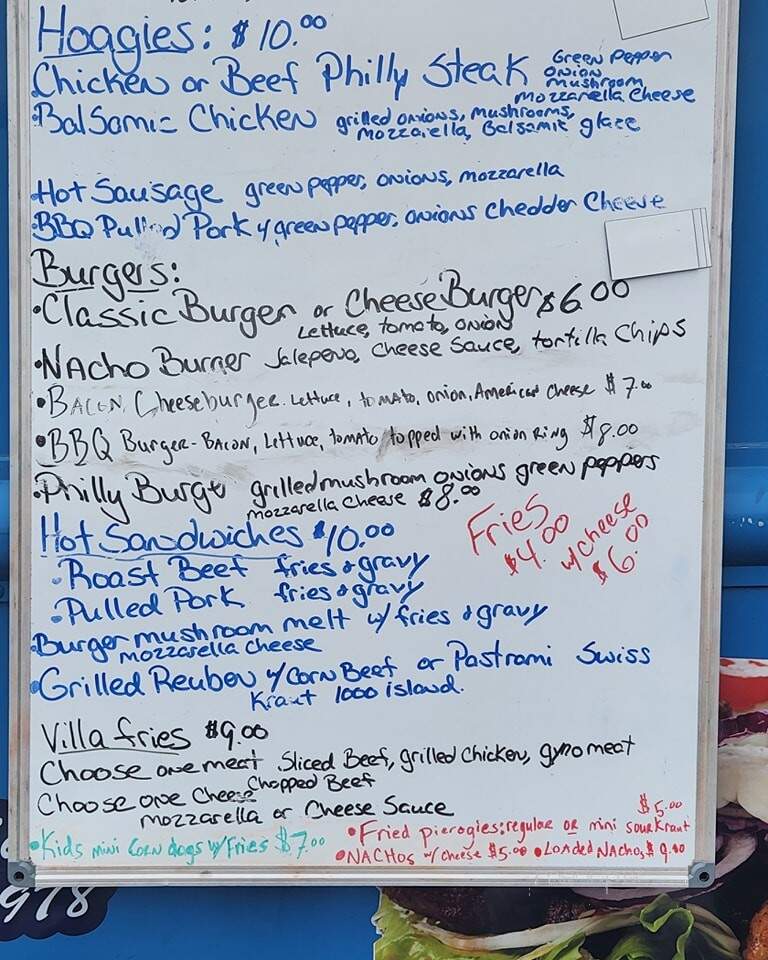 Hoagies: $10.00
Chicken or Beef Philly Steak Green Pepper
onion
mushroom
mozzarella cheese
•Balsamic Chicken grilled onions, mushrooms,
mozzarella, Balsamic glaze
•Hot Sausage green pepper, onions, mozzarella
•BBQ Pulled Pork w/ green pepper, onions Chedder Cheese
Burgers:
•Classic Burger or CheeseBurger $6.00
Lettuce, tomato, onion
•NAcho Burner Jalepeno, Cheese Sauce, tortilla Chips
•BACON Cheeseburger. Lettuce, tomato, onion, American Cheese $7.00
•BBQ Burger-BACON, Lettuce, tomato topped with onion Ring $8.00
•Philly Burge grilled mushroom onions green peppers
mozzarella Cheese $8.00
Hot Sandwiches $10.00
•Roast Beef fries & gravy
•Pulled Pork fries & gravy
•Burger mushroom melt w/ fries & gravy
mozzarella Cheese
•Grilled Reuben w/ Corn Beef or Pastrami Swiss
Kraut 1000 island.
Fries
$4.00
w/ Cheese
$6.00
Villa fries $9.00
Choose one meat Sliced Beef, grilled Chicken, gyro meat
Chopped Beef
Choose one Cheese
mozzarella or Cheese Sauce
•Kids mini Corn dogs w/ Fries $7.00
$5.00
•Fried pierogies: regular or mini sourkraut
•NACHOS w/ cheese $5.00 •LOADED NAChos $9.00
978